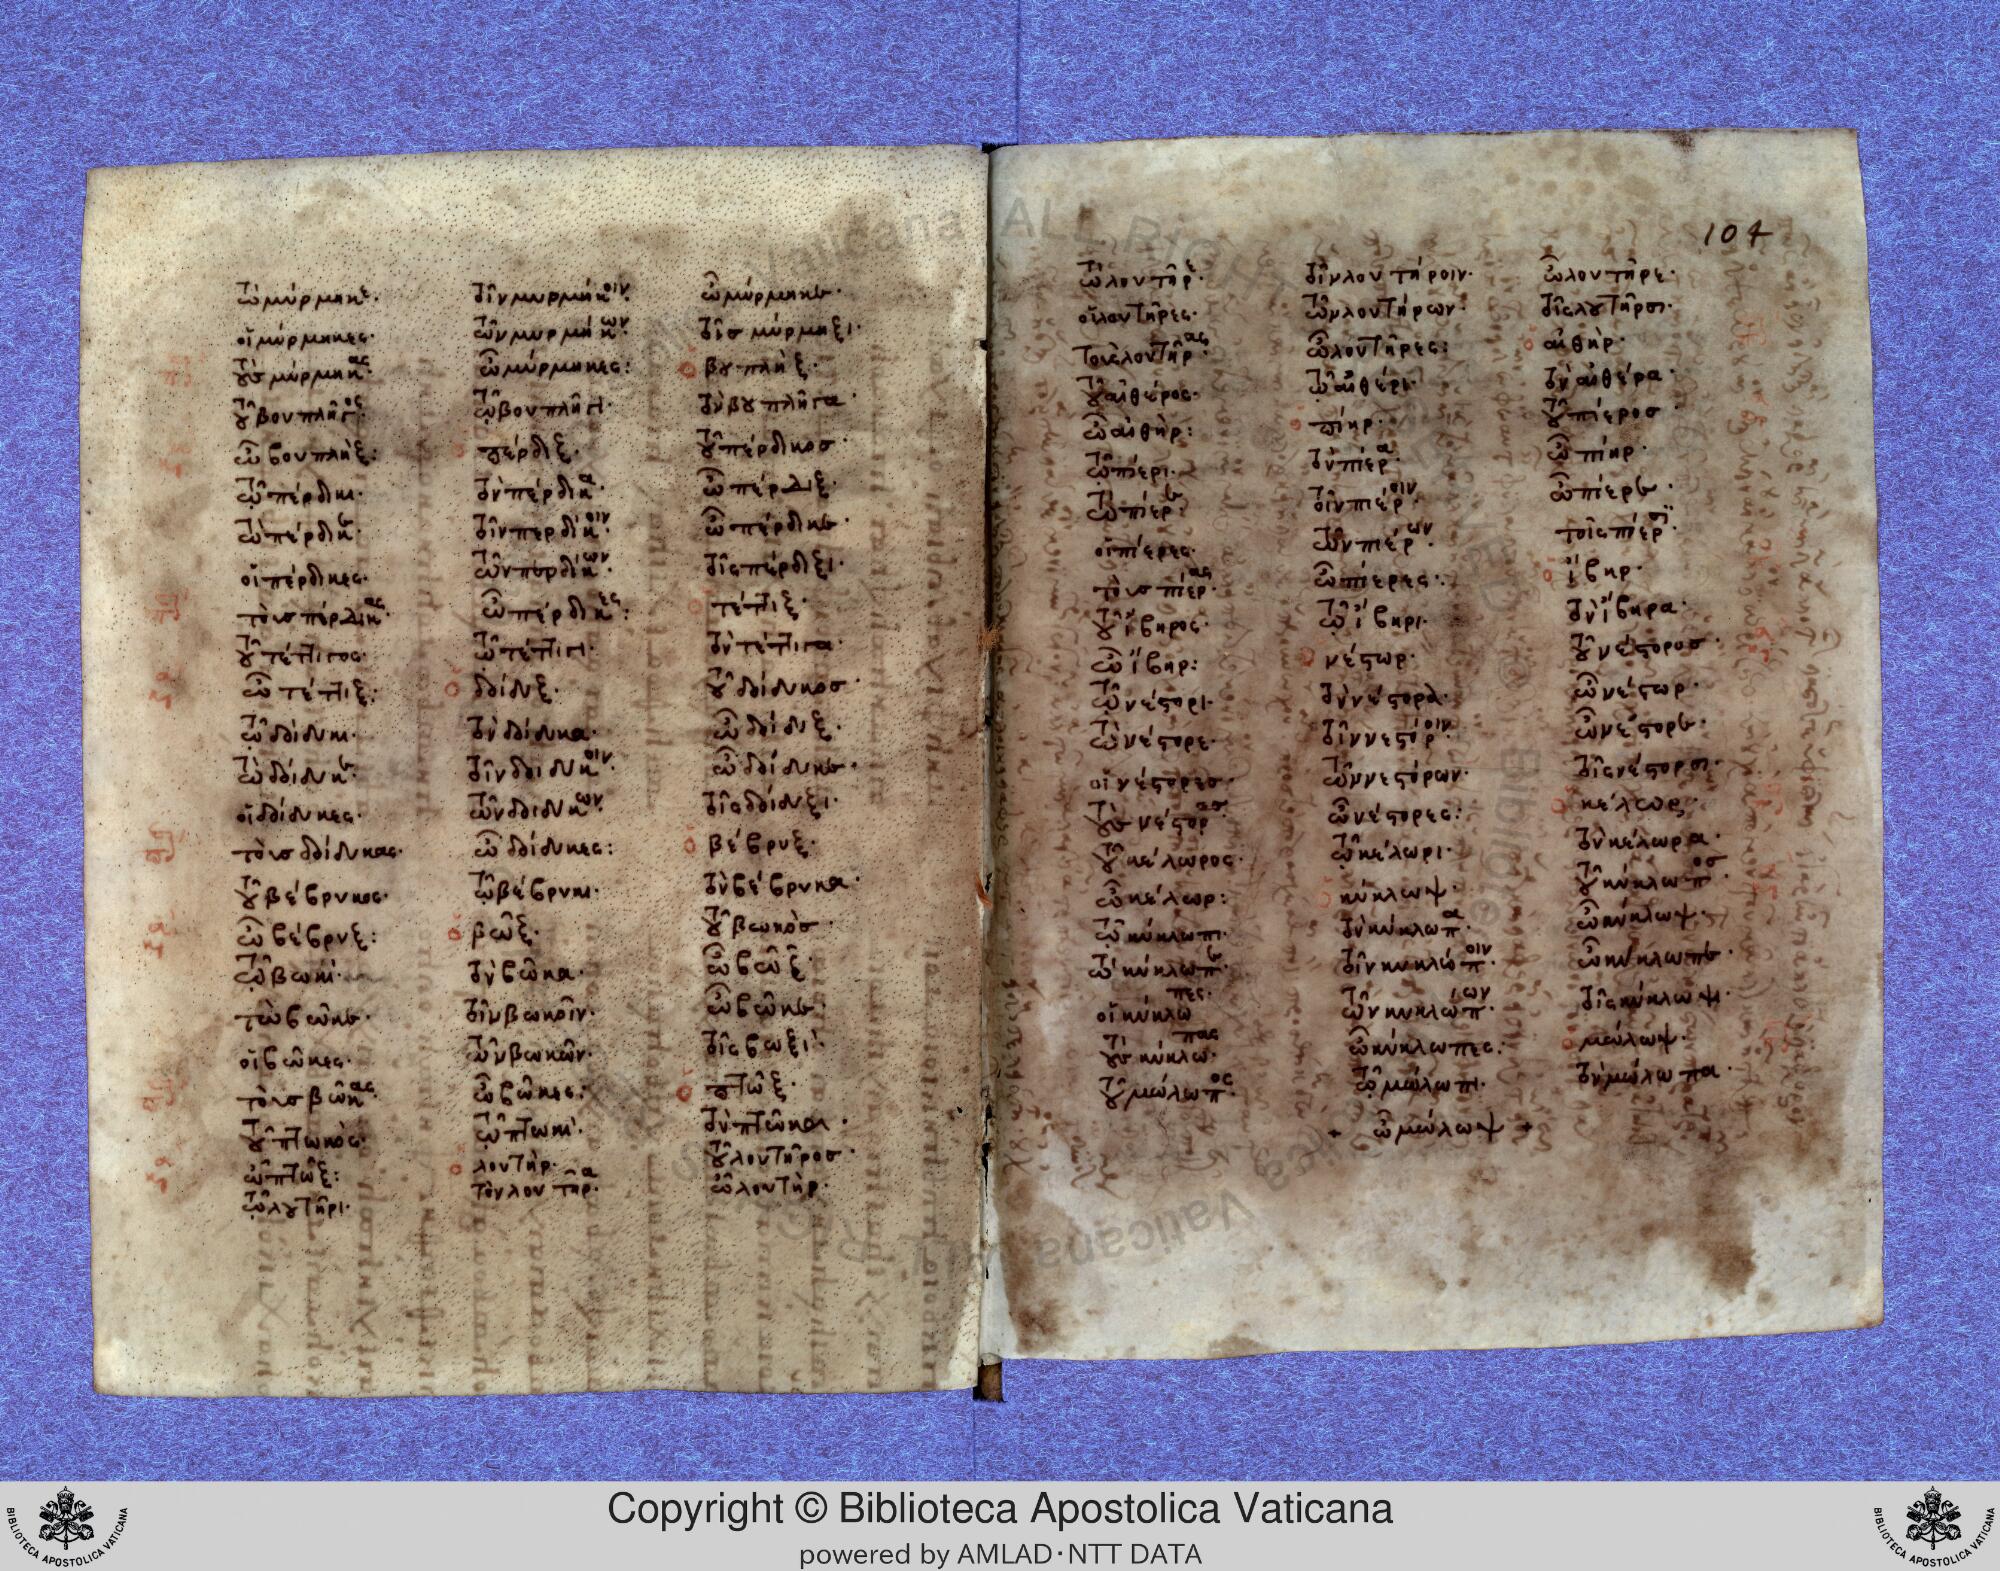 τὼ μύρμηκε· τοῖν μυρμήκοιν· ὦ μύρμηκε·
οἱ μύρμηκες· τῶν μυρμήκων· τοῖς μύρμηξι·
τοὺς μύρμηκας· ὦ μύρμηκες: ὁ βουπλὴξ·
τοῦ βουπλῆγος· τῷ βουπλῆγι· τὸν βουπλῆγα·
ὦ βουπλὴξ: ὁ πέρδιξ· τοῦ πέρδικος·
τῷ πέρδικι· τὸν πέρδικα· ὦ πέρδιξ·
τὼ πέρδικε· τοῖν περδίκοιν· ὦ πέρδικε·
οἱ πέρδικες· τῶν περδίκων· τοῖς πέρδιξι·
τοὺς πέρδικας· ὦ πέρδικες: ὁ τέττιξ·
τοῦ τέττιγος· τῷ τέττιγι· τὸν τέττιγα·
ὦ τέττιξ: ὁ δοίδυξ· τοῦ δοίδυκος·
τῷ δοίδυκι· τὸν δοίδυκα· ὦ δοίδυξ·
τὼ δοίδυκε· τοῖν δοιδύκοιν· ὦ δοίδυκε·
οἱ δοίδυκες· τῶν δοιδύκων· τοῖς δοίδυξι·
τοὺς δοίδυκας· ὦ δοίδυκες: ὁ βέβρυξ·
τοῦ βέβρυκος· τῷ βέβρυκι· τὸν βέβρυκα·
ὦ βέβρυξ: ὁ βῶξ· τοῦ βωκὸς·
τῷ βωκί· τὸν βῶκα· ὦ βῶξ·
τὼ βῶκε· τοῖν βωκοῖν· ὦ βῶκε·
οἱ βῶκες· τῶν βωκῶν· τοῖς βωξὶ·
τοὺς βῶκας· ὦ βῶκες: ὁ πτῶξ·
τοῦ πτωκὸς· τῷ πτωκί· τὸν πτῶκα·
ὦ πτῶξ: ὁ λουτήρ· τοῦ λουτῆρος·
τῷ λουτῆρι· τὸν λουτῆρα· ὦ λουτὴρ·
104
τὼ λουτῆρε· τοῖν λουτήροιν· ὦ λουτῆρε·
οἱ λουτῆρες· τῶν λουτήρων· τοῖς λουτῆρσι·
τοὺς λουτῆρας· ὦ λουτῆρες: ὁ αἰθὴρ·
τοῦ αἰθέρος· τῷ αἰθέρι· τὸν αἰθέρα·
ὦ αἰθὴρ: ὁ πίηρ· τοῦ πίερος·
τῷ πίερι· τὸν πίερα· ὦ πίηρ·
τὼ πίερε· τοῖν πιέροιν· ὦ πίερε·
οἱ πίερες· τῶν πιέρων· τοῖς πίερσι·
τοὺς πίερας· ὦ πίερες: ὁ ἴβηρ·
τοῦ ἴβηρος· τῷ ἴβηρι· τὸν ἴβηρα·
ὦ ἴβηρ: ὁ νέστωρ· τοῦ νέστορος·
τῷ νέστορι· τὸν νέστορα· ὦ νέστωρ·
τὼ νέστορε· τοῖν νεστόροιν· ὦ νέστορε·
οἱ νέστορες· τῶν νεστόρων· τοῖς νέστορσι·
τοὺς νέστορας· ὦ νέστορες: ὁ κέλωρ·
τοῦ κέλωρος· τῷ κέλωρι· τὸν κέλωρα·
ὦ κέλωρ: ὁ κύκλωψ· τοῦ κύκλωπος·
τῷ κύκλωπι· τὸν κύκλωπα· ὦ κύκλωψ·
τὼ κύκλωπε· τοῖν κυκλώποιν· ὦ κύκλωπε·
οἱ κύκλωπες· τῶν κυκλώπων· τοῖς κύκλωψι·
τοὺς κύκλωπας· ὦ κύκλωπες: ὁ μώλωψ·
τοῦ μώλωπος· τῷ μώλωπι· τὸν μώλωπα·
+ ὦ μώλωψ +
Copyright © Biblioteca Apostolica Vaticana
powered by AMLAD·NTT DATA
BIBLIOTECA APOSTOLICA VATICANA
BIBLIOTECA APOSTOLICA VATICANA